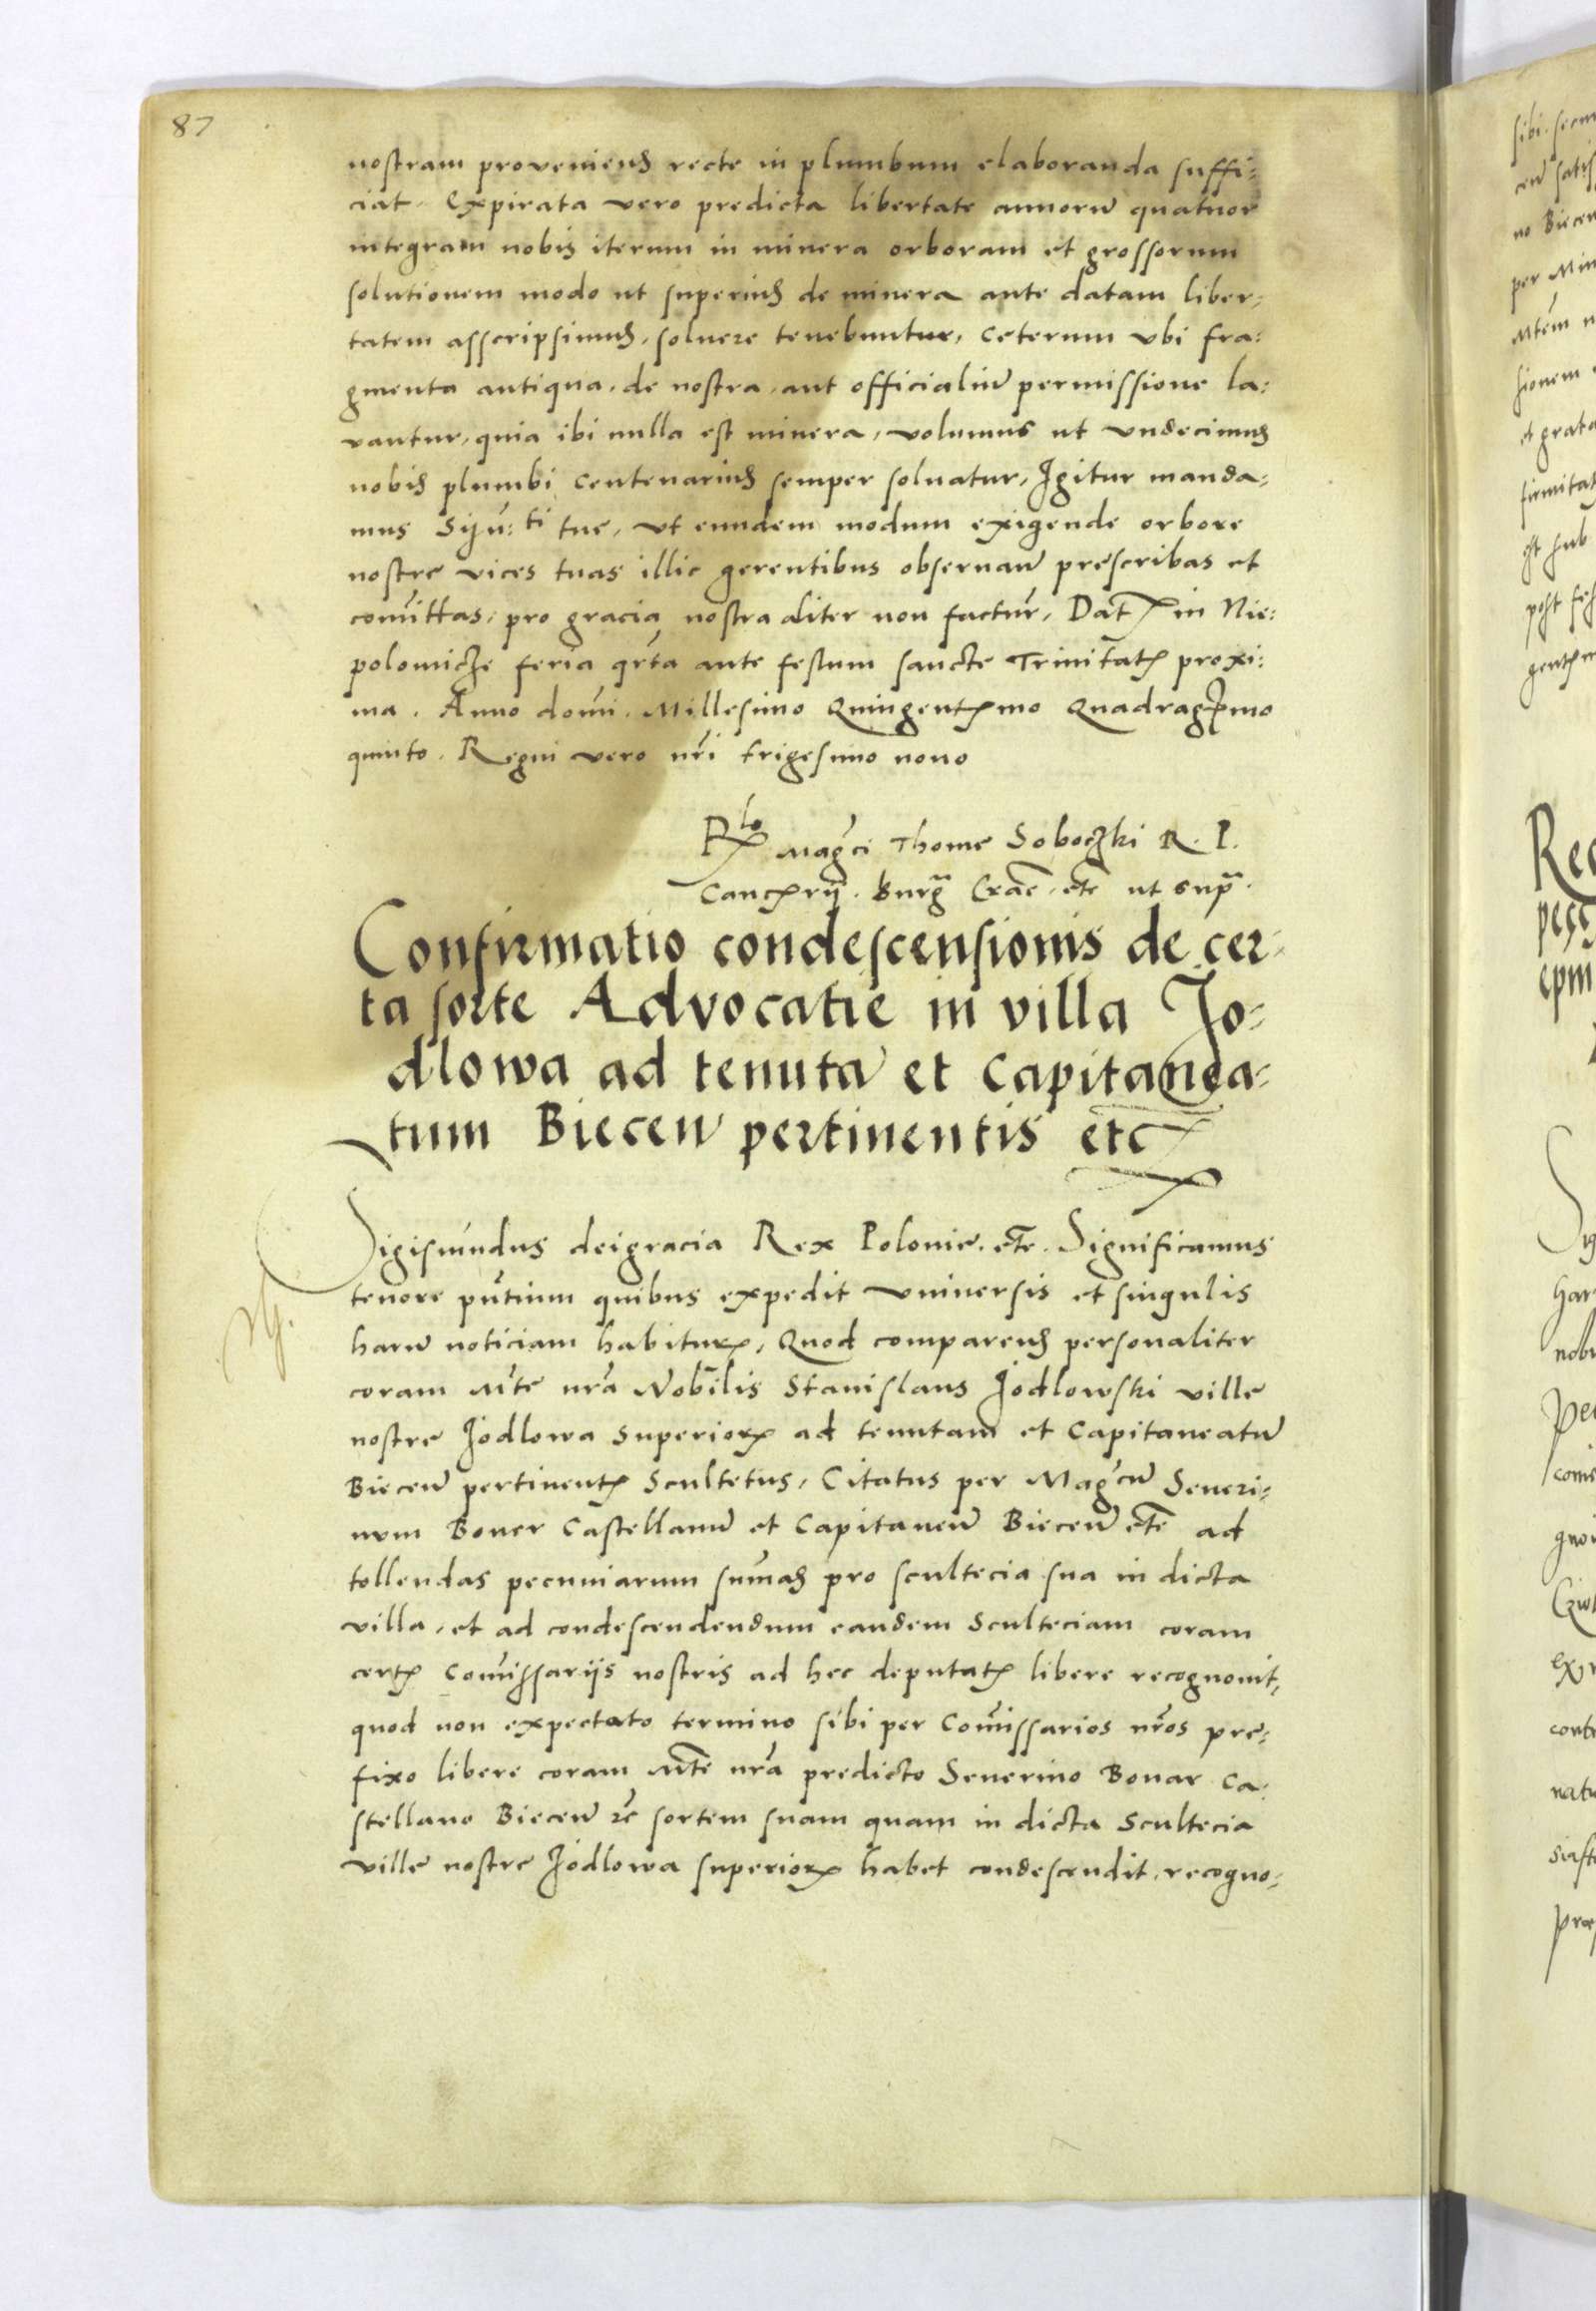 87
nostram proveniens recte in plumbum elaboranda suffi:
ciat. Expirata vero predicta libertate annorū quatuor
integram nobis iterum in minera orboram et grossorum
solutionem modo ut superius de minera ante datam liber:
tatem asscripsimus, soluere tenebuntur, ceterum vbi fra:
gmenta antiqua, de nostra, aut officialiū permissione la:
vantur, quia ibi nulla est minera, volumus ut vndecimus
nobis plumbi centenarius semper soluatur, Igitur manda:
mus Syn:ti tue, ut eundem modum exigende orbore
nostre vices tuas illic gerentibus obseruan̄ prescribas et
com̄ittas, pro gracia nostra aliter non factur̄, Dat̄ in Nie:
polomicze feria qr̄ta ante festum sancte Trinitat̄ꝭ proxi:
ma. Anno domī. Millesimo Quingentꝭmo Quadragꝭmo
quinto. Regni vero nr̄i trigesimo nono
Rlo Magc̄i Thome Soboczki R. P.
Cancꝭrij. Burḡ Crac̄. etc̄ ut supª.
Confirmatio condescensionis de cer:
ta sorte Advocatie in villa Jo:
dlowa ad tenutā et capitanea:
tum Biecen̄ pertinentis etc
Sigismūndus deigracia Rex Polonie. etc̄. Significamus
tenore pn̄tium quibus expedit vniuersis et singulis
harū noticiam habiturꝭ, Quod comparens personaliter
coram Mt̄e nr̄a Nobilis Stanislaus Jodlowski ville
nostre Jodlowa superiorꝭ ad tenutam et Capitaneatū
Biecen̄ pertinentꝭ Scultetus, Citatus per Magc̄ū Seueri:
num Boner Castellanū et Capitaneū Biecen̄ etc̄ ad
tollendas pecuniarum sum̄as pro scultecia sua in dicta
villa, et ad condescendendum eandem Sculteciam coram
certꝭ Com̄issarijs nostris ad hec deputatꝭ libere recognouit,
quod non expectato termino sibi per Com̄issarios nr̄os pre:
fixo libere coram Mt̄e nr̄a predicto Seuerino Bonar Ca:
stellano Biecen̄ ꝛc̄ sortem suam quam in dicta Scultecia
ville nostre Jodlowa superiorꝭ habet condescendit, recogno: